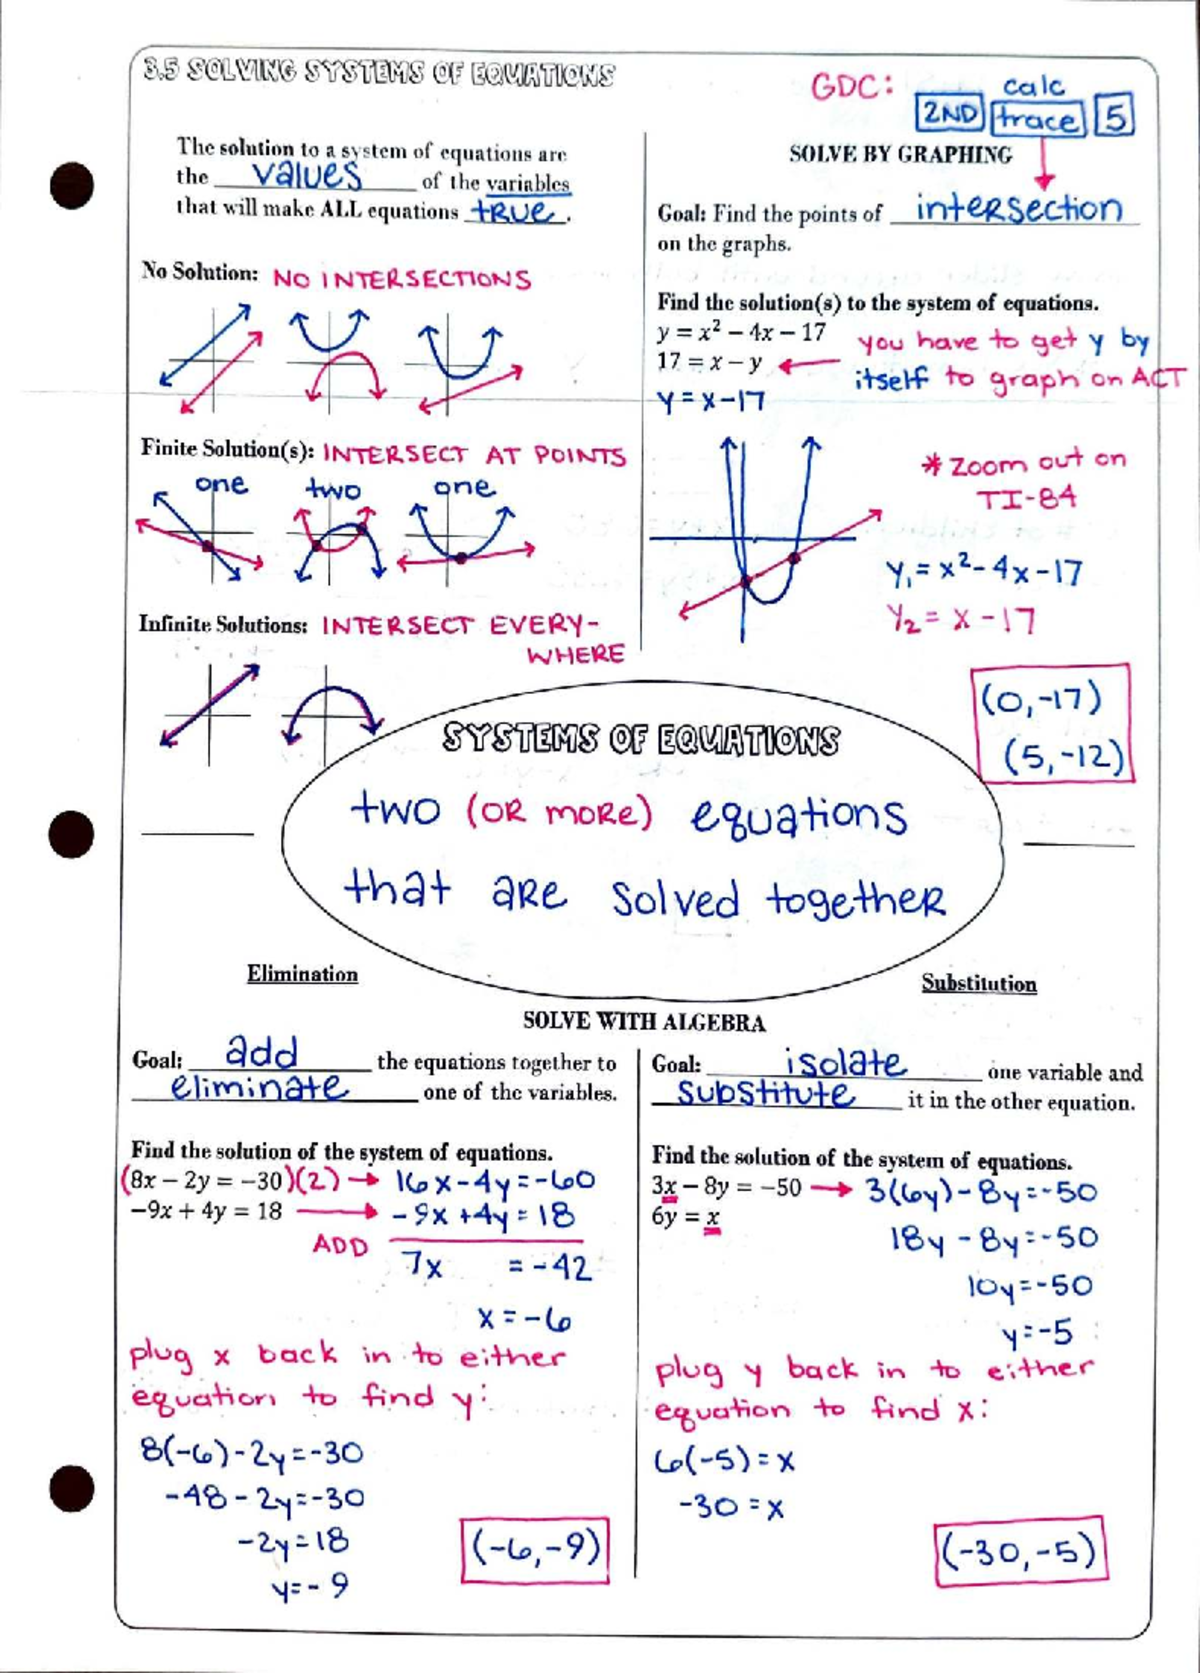 3.5 SOLVING SYSTEMS OF EQUATIONS
The solution to a system of equations are
the values of the variables
that will make ALL equations true.
No Solution: NO INTERSECTIONS
Finite Solution(s): INTERSECT AT POINTS
one two one
Infinite Solutions: INTERSECT EVERY-
WHERE
GDC: calc
2ND trace 5
SOLVE BY GRAPHING
Goal: Find the points of intersection
on the graphs.
Find the solution(s) to the system of equations.
y = x² – 4x – 17
17 = x – y
y = x-17
you have to get y by
itself to graph on ACT
* zoom out on
TI-84
y₁ = x²-4x-17
y₂ = x -17
(0,-17)
(5,-12)
SYSTEMS OF EQUATIONS
two (OR MORE) equations
that are solved together
SOLVE WITH ALGEBRA
Elimination
Goal: add the equations together to
eliminate one of the variables.
Find the solution of the system of equations.
(8x – 2y = –30)(2) → 16x-4y=-60
–9x + 4y = 18 → -9x +4y = 18
ADD 7x = -42
x = -6
plug x back in to either
equation to find y:
8(-6)-2y=-30
-48-2y=-30
-2y=18
y=-9
(-6,-9)
Substitution
Goal: isolate one variable and
substitute it in the other equation.
Find the solution of the system of equations.
3x – 8y = –50 → 3(6y)-8y=-50
6y = x
18y-8y=-50
10y=-50
y=-5
plug y back in to either
equation to find x:
6(-5)=x
-30=x
(-30,-5)